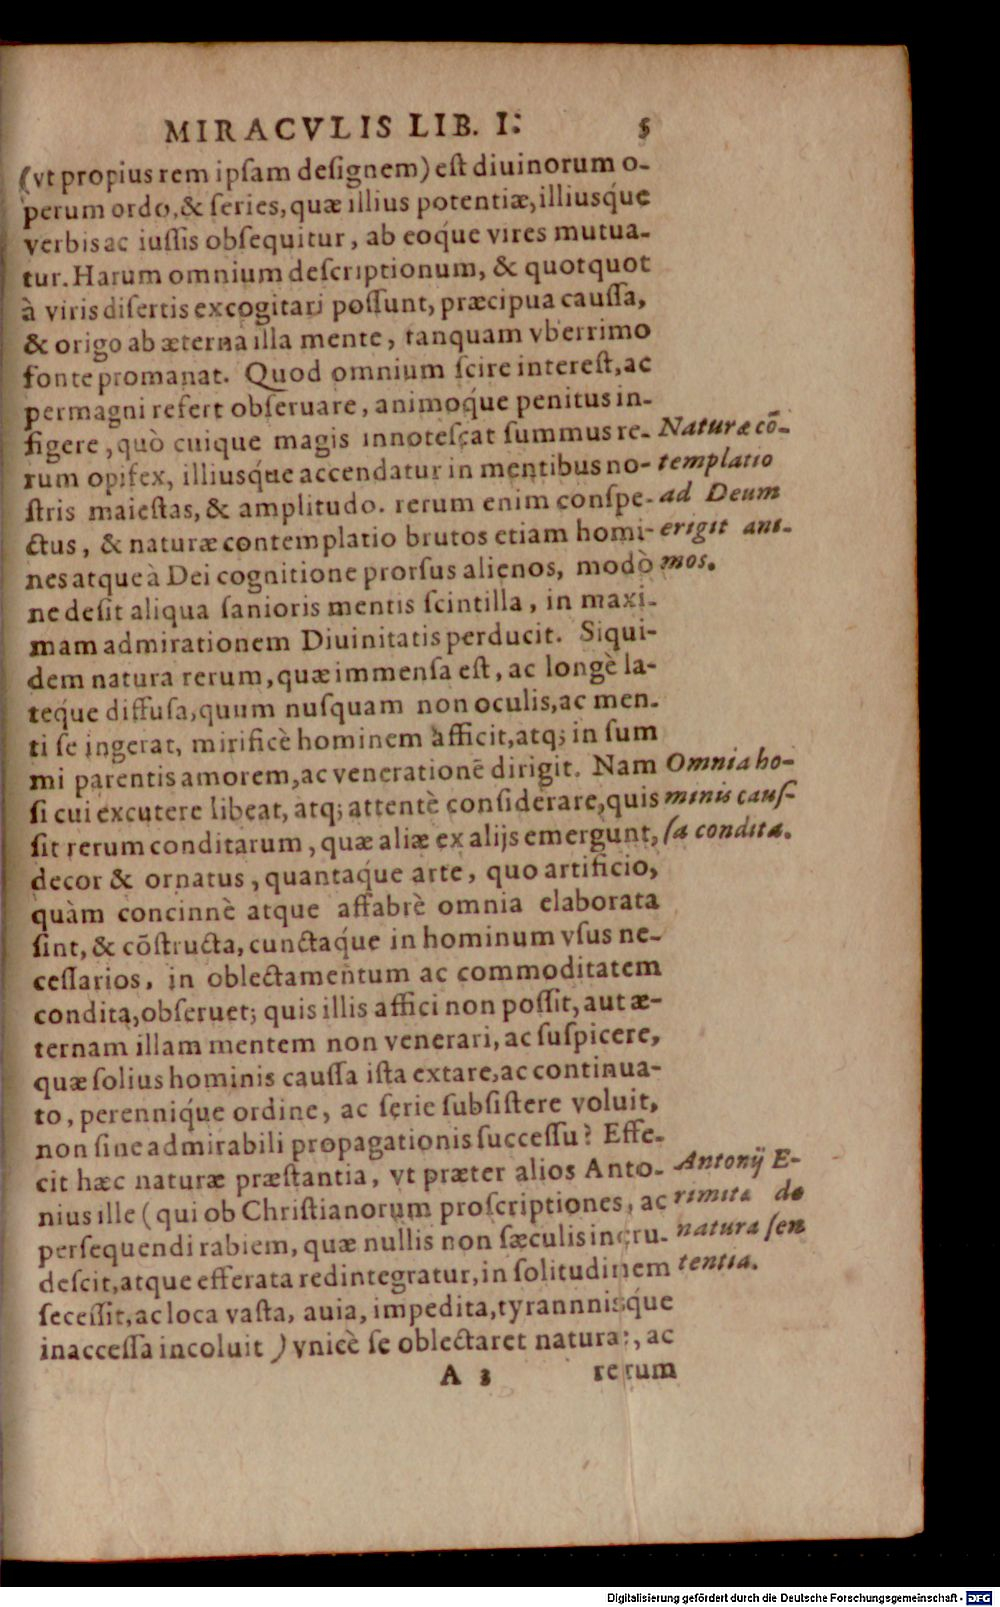 MIRACVLIS LIB. I. 5
(vt propius rem ipſam deſignem) eſt diuinorum o-
perum ordo, & ſeries, quæ illius potentiæ, illiusq́ue
verbis ac iuſſis obſequitur, ab eoque vires mutua-
tur. Harum omnium deſcriptionum, & quotquot
à viris diſertis excogitari poſſunt, præcipua cauſſa,
& origo ab æterna illa mente, tanquam vberrimo
fonte promanat. Quod omnium ſcire intereſt, ac
permagni refert obſeruare, animoq́ue penitus in-
figere, quò cuique magis innoteſcat ſummus re-
rum opifex, illiusq́ue accendatur in mentibus no-
ſtris maieſtas, & amplitudo. rerum enim conſpe-
ctus, & naturæ contemplatio brutos etiam homi-
nes atque à Dei cognitione prorſus alienos, modò
ne deſit aliqua ſanioris mentis ſcintilla, in maxi-
mam admirationem Diuinitatis perducit. Siqui-
dem natura rerum, quæ immenſa eſt, ac longè la-
teq́ue diffuſa, quum nuſquam non oculis, ac men-
ti ſe ingerat, mirificè hominem afficit, atq; in ſum
mi parentis amorem, ac venerationē dirigit. Nam
ſi cui excutere libeat, atq; attentè conſiderare, quis
ſit rerum conditarum, quæ aliæ ex alijs emergunt,
decor & ornatus, quantaq́ue arte, quo artificio,
quàm concinnè atque affabrè omnia elaborata
ſint, & cōſtructa, cunctaq́ue in hominum vſus ne-
ceſſarios, in oblectamentum ac commoditatem
condita, obſeruet; quis illis affici non poſſit, aut æ-
ternam illam mentem non venerari, ac ſuſpicere,
quæ ſolius hominis cauſſa iſta extare, ac continua-
to, perenniq́ue ordine, ac ſerie ſubſiſtere voluit,
non ſine admirabili propagationis ſucceſſu? Effe-
cit hæc naturæ præſtantia, vt præter alios Anto-
nius ille (qui ob Chriſtianorum proſcriptiones, ac
perſequendi rabiem, quæ nullis non ſæculis incru-
deſcit, atque efferata redintegratur, in ſolitudinem
ſeceſſit, ac loca vaſta, auia, impedita, tyrannnisq́ue
inacceſſa incoluit) vnicè ſe oblectaret natura:, ac
A 3 rerum
Naturæ cō-
templatio
ad Deum
erigit ani-
mos.
Omnia ho-
minis cauſ-
ſa condita.
Antonij E-
rimitæ de
natura ſen
tentia.
Digitalisierung gefördert durch die Deutsche Forschungsgemeinschaft - DFG